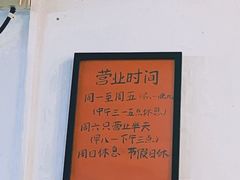 营业时间
周一至周五
(中午三一五点休息)
周六只营业半天
(早八一下午三点)
周日休息 节假日休